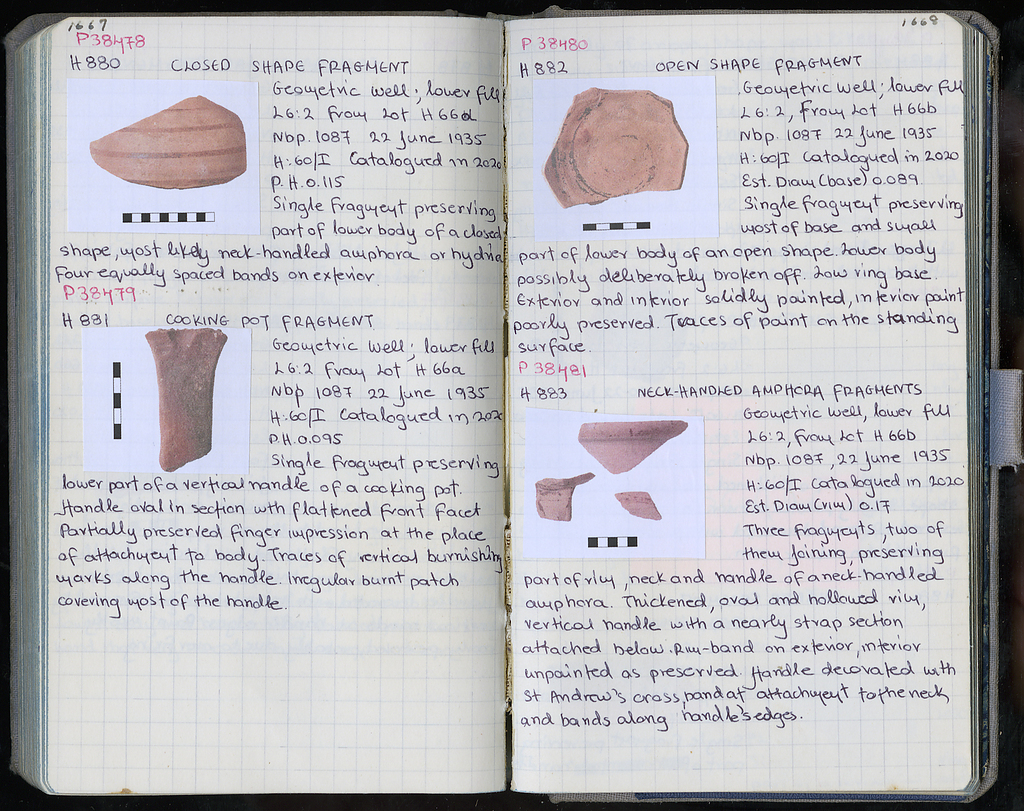 1667
P38478
H 880 CLOSED SHAPE FRAGMENT
Geometric well; lower fill
L6:2 From Lot H 66a
Nbp. 1087 22 June 1935
H:60/I Catalogued in 2020
P.H.0.115
Single Fragment preserving
part of lower body of a closed
shape, most likely neck-handled amphora or hydria
Four equally spaced bands on exterior.
P38479
H 881 COOKING POT FRAGMENT
Geometric well; lower fill
L6:2 From Lot H 66a
Nbp 1087 22 June 1935
H:60/I Catalogued in 2020
P.H.0.095
Single fragment preserving
lower part of a vertical handle of a cooking pot.
Handle oval in section wth flattened front facet
Partially preserved finger impression at the place
of attachment to body. Traces of vertical burnishing
marks along the handle. Irregular burnt patch
covering most of the handle.
1668
P 38480
H 882 OPEN SHAPE FRAGMENT
Geometric well; lower fill
L6:2, from Lot H 66b
Nbp. 1087 22 June 1935
H:60/I Catalogued in 2020
Est. Diam (base) 0.089
Single fragment preserving
most of base and small
part of lower body of an open shape. Lower body
possibly deliberately broken off. Low ring base.
Exterior and interior solidly painted, interior paint
poorly preserved. Traces of paint on the standing
surface.
P 38481
H 883 NECK-HANDLED AMPHORA FRAGMENTS
Geometric well, lower fill
L6:2, from Lot H 66b
Nbp. 1087, 22 June 1935
H:60/I Catalogued in 2020
Est. Diam (rim) 0.17
Three fragments, two of
them joining, preserving
part of rim, neck and handle of a neck-handled
amphora. Thickened, oval and hollowed rim,
vertical handle with a nearly strap section
attached below. Rim-band on exterior, interior
unpainted as preserved. Handle decorated with
St Andrew's cross, band at attachment to the neck
and bands along handle's edges.